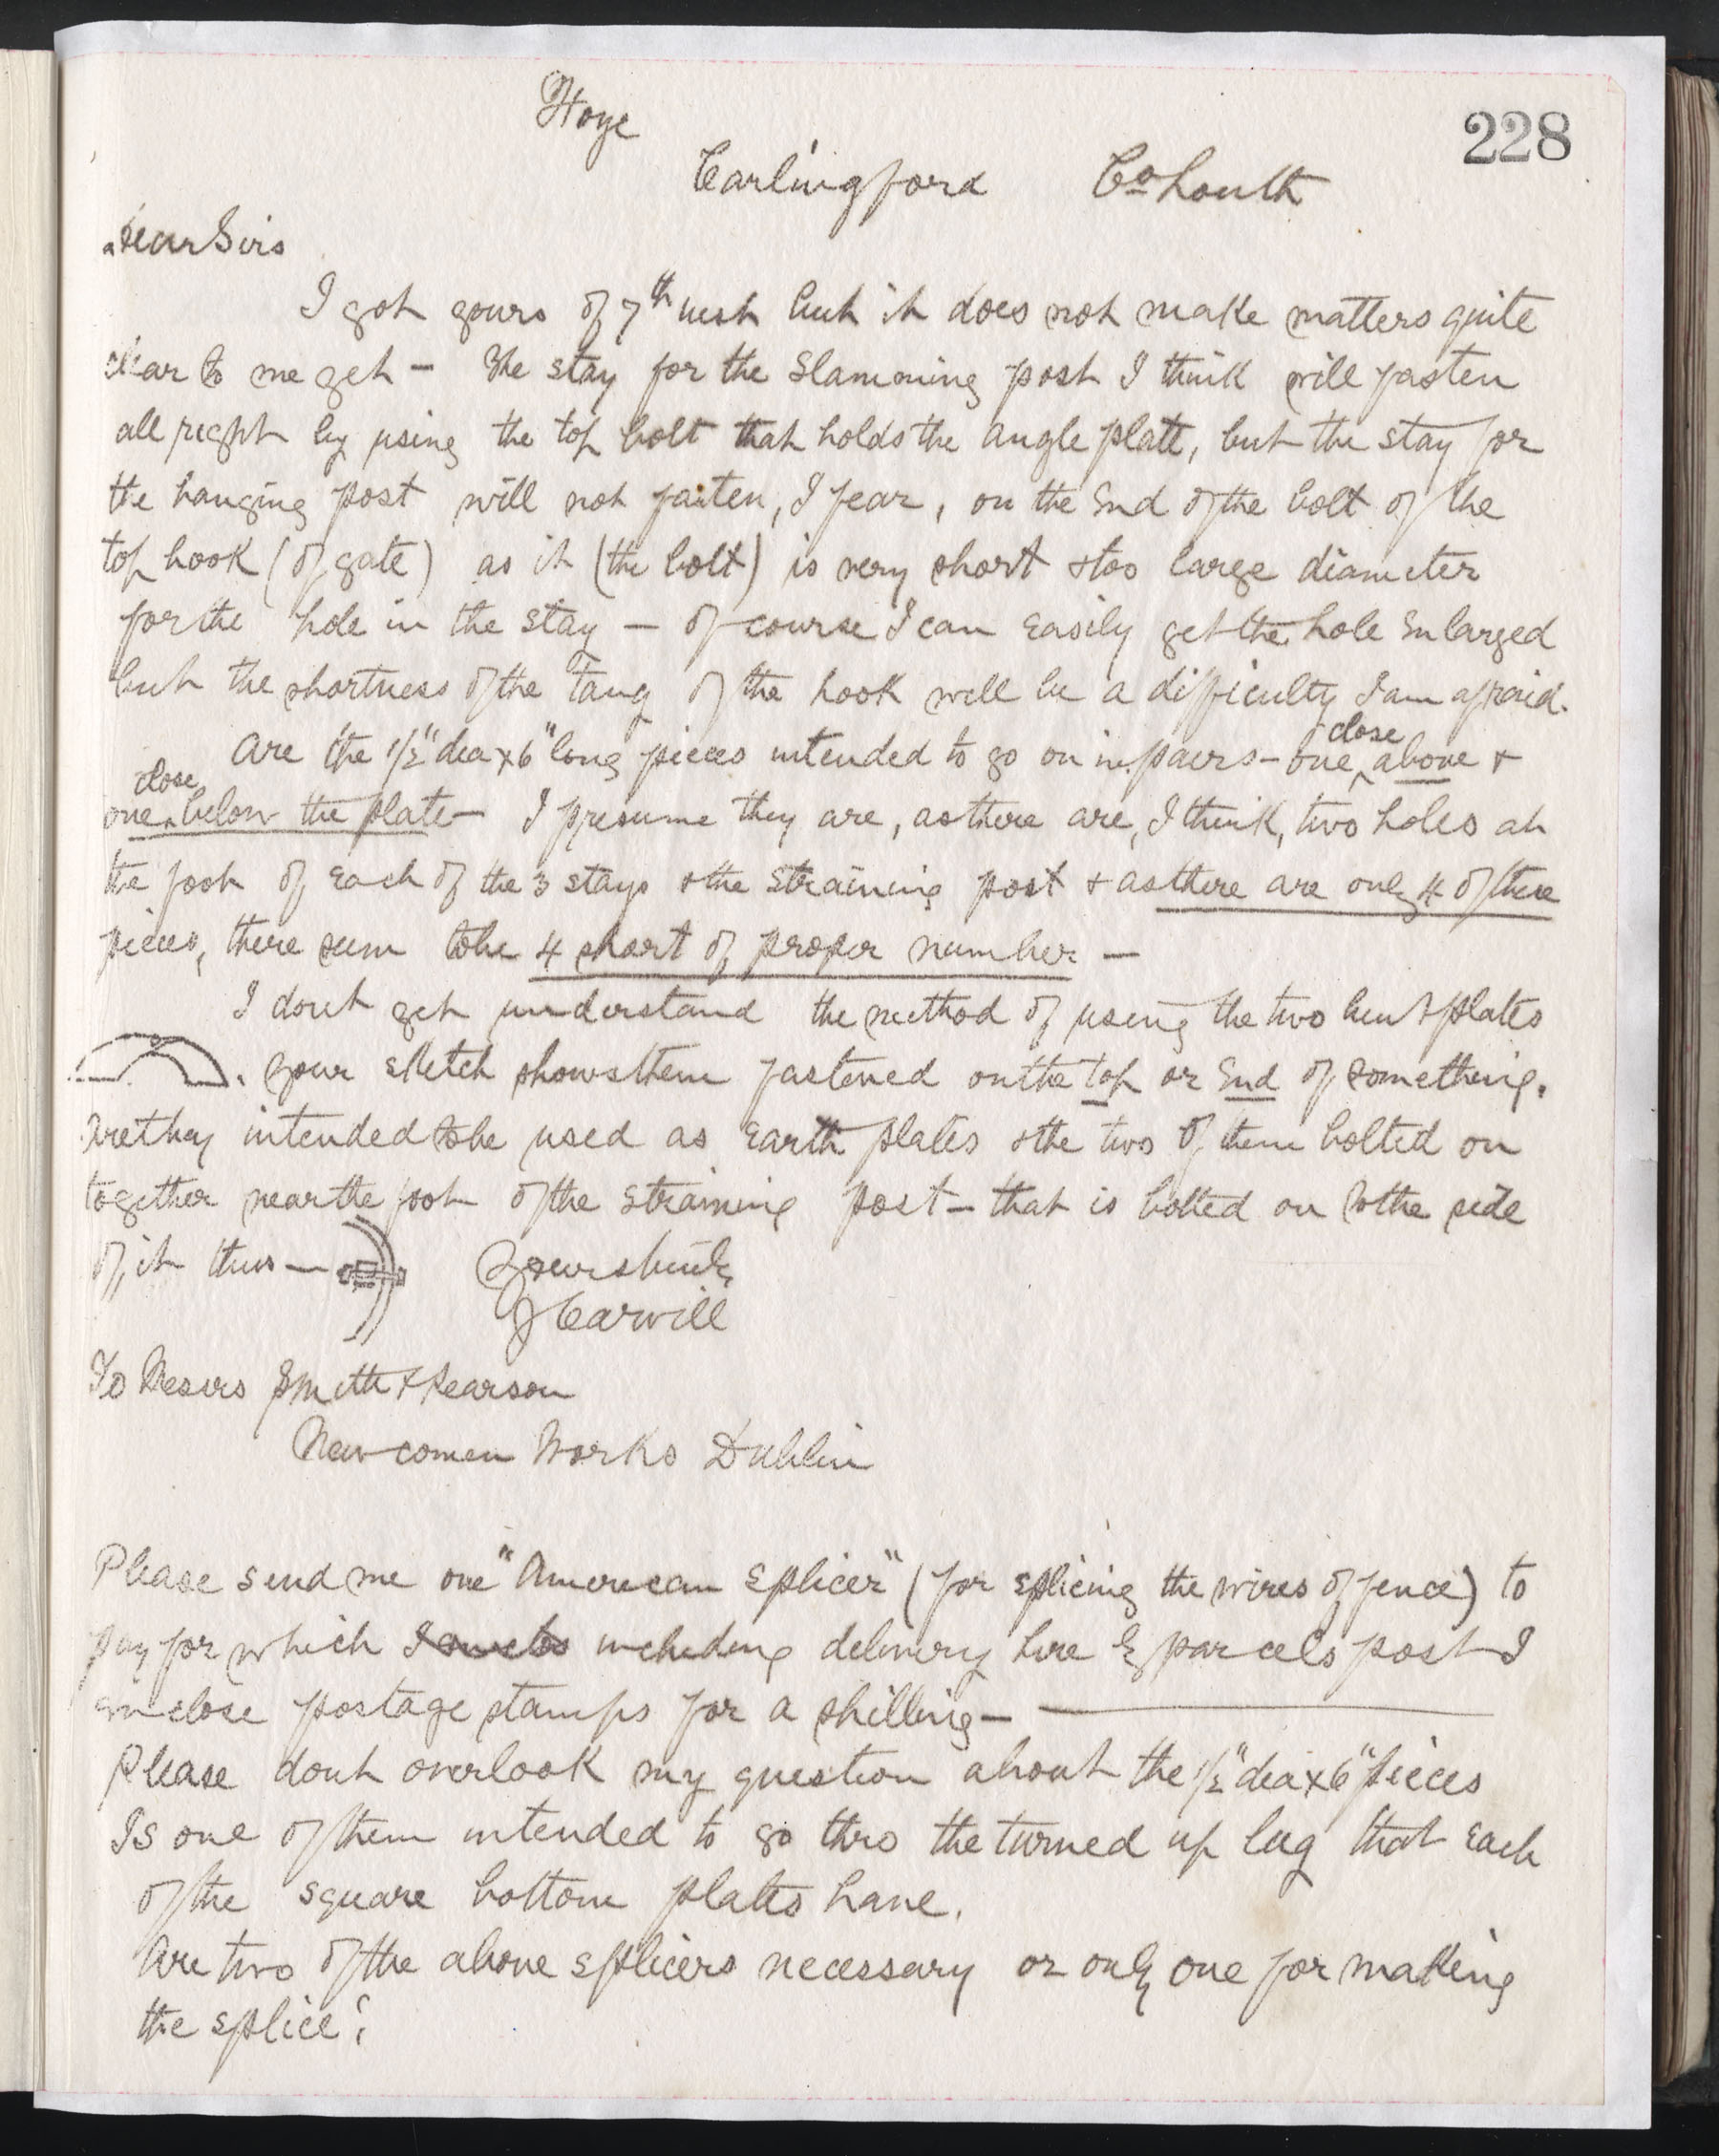 228
Carlingford Co Louth
Dear Sirs
I got yours of 7th inst but it does not make matters quite
clear to me yet - The stay for the slamming post I think will fasten
all right by using the top bolt that holds the angle plate, but the stay for
the hanging post will not fasten, I fear, on the End of the bolt of the
top hook (of gate) as it (the bolt) is very short & too large diameter
for the hole in the stay - of course I can Easily get the hole Enlarged
but the shortness of the tang of the hook will be a difficulty I am afraid.
Are the 1/2" dia x 6" long pieces intended to go on in pairs - one close above &
one close below the plate - I presume they are, as there are, I think, two holes at
the foot of Each of the 3 stays & the straining post & as there are only 4 of these
pieces, there seem to be 4 short of proper number -
I dont yet understand the method of using the two bent plates
. your sketch shows them fastened on the top or End of something.
Are they intended to be used as Earth plates & the two of them bolted on
together near the foot of the straining post - that is bolted on to the side
of it thus -
Yours truly
J Carvill
To Messrs Smith & Pearson
Newcomen Works Dublin
Please send me one "American Splicer" (for splicing the wires of fence) to
pay for which I including delivery here by parcels post I
enclose postage stamps for a shilling -
Please dont overlook my question about the 1/2" dia x 6" pieces
Is one of them intended to go thro the turned up lug that Each
of the square bottom plates have.
Are two of the above splicers necessary or only one for making
the splice?